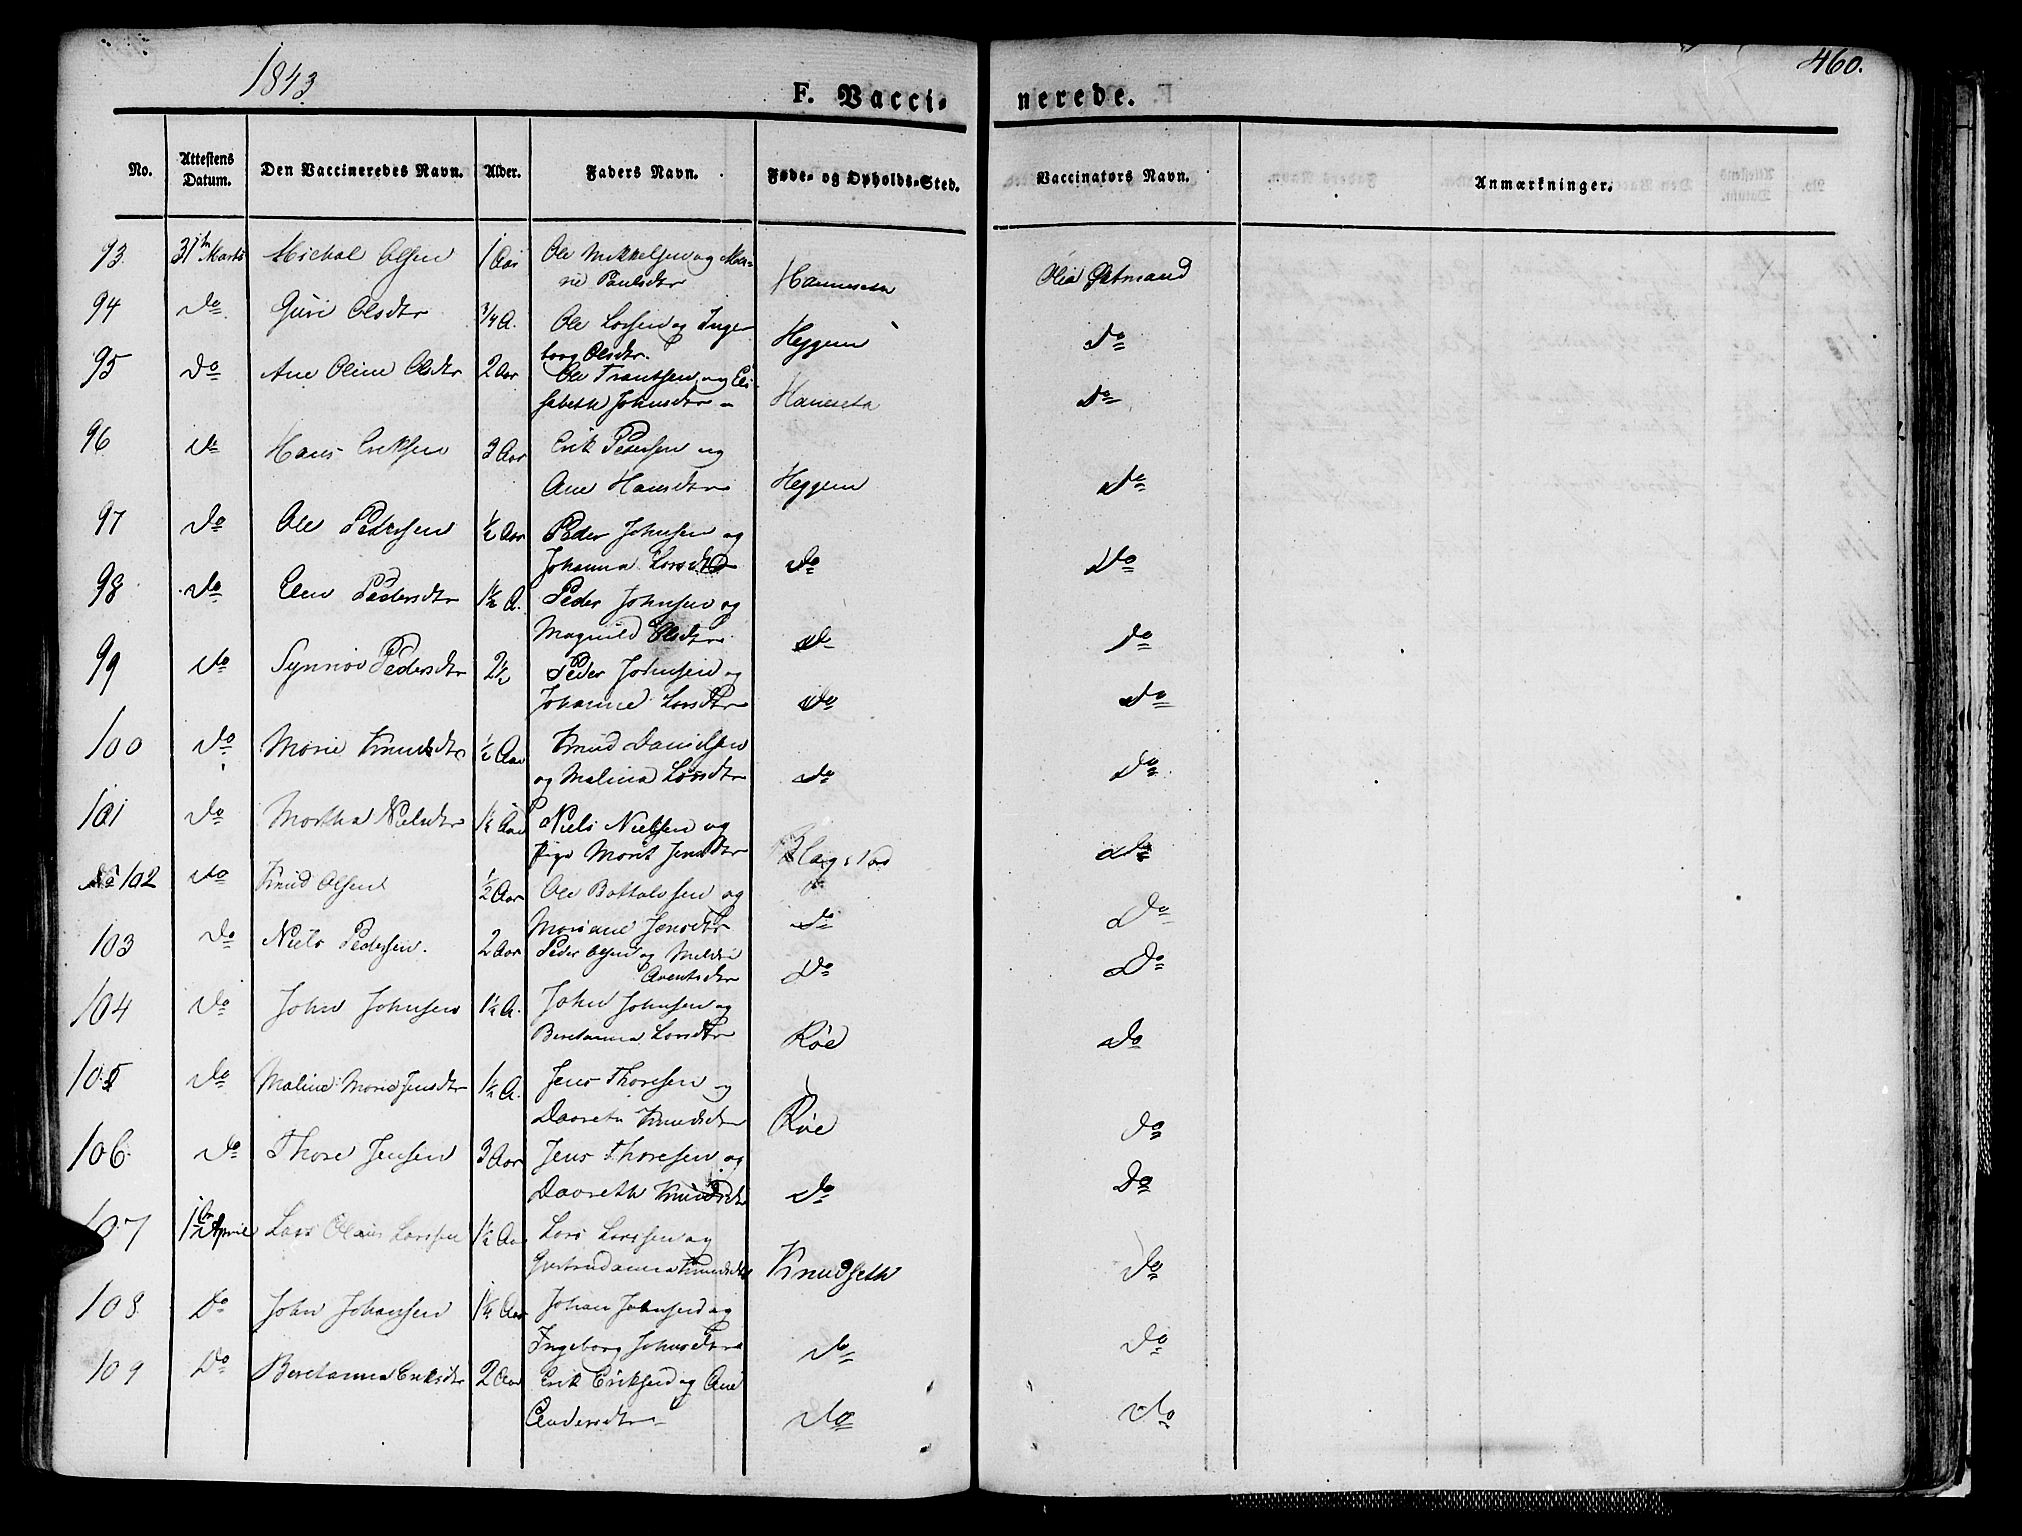 1843
460.
F. Vacci-
nerede.
No. Attestens Datum. Den Vaccineredes Navn. Alder. Faders Navn. Føde- og Opholds-Sted. Vaccinators Navn. Anmærkninger.
93. 31te Marts Michal Olsen 1 Aar Ole Mikkelsen og
Paulsdtr Ole
94 do Guri Olsdtr 3/4 A. Ole Larsen og Inge-
borg Olsdtr. Heggem do
95 do Ane Oline Olsdtr 2 Aar Ole Frantsen og Eli-
sabeth Johnsdtr Haneseta do
96 do Hans Eriksen 3 Aar Erik Pedersen og
Ane Hansdtr Heggem do
97 do Ole Pedersen 1/2 Aar Peder Johnsen og
Johanna Larsdtr do do
98 do Elen Pedersdtr 1 1/2 A. Peder Johnsen og
Magnild Olsdtr do do
99 do Synnøv Pedersdtr 2 1/2 Peder Johnsen og
Johanne Larsdtr do do
100 do Marie Knudsdtr 1/2 Aar Knud Danielsen
og Malina Larsdtr do do
101 do Martha Nielsdtr Aar Niels Nielsen og
Pige Marit Jensdtr do
No 102 do Knud Olsen 1/2 Aar Ole Bottolvsen og
Mariane Jensdtr do do
103 do Niels Pedersen. 2 Aar Peder Olsen og Meldri
Arentsdtr do do
104 do John Johnsen 1 1/2 A. John Johnsen og
Beretanna Larsdtr Røe do
105 do Maline Marie Jensdtr 1 1/2 A. Jens Thoresen og
Daareth Knudsdtr Røe do
106. do Thore Jensen 3 Aar Jens Thoresen og
Daareth Knudsdtr do do
107 April Lars Olaus Larssen Aar Lars Larssen og
Gjertrudanna Knudsdtr Knudseth do
108. Do John Johansen Aar Johan Johnsen og
Ingeborg Johnsdtr do do
109 Do Beretanna Eriksdtr 2 Aar Erik Eriksen og Ane
Andersdtr do do